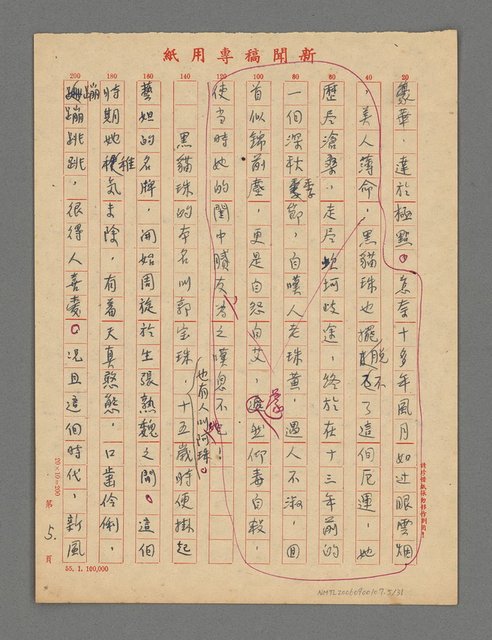 新聞稿專用紙
繁華，達於極點。怎奈十多年風月如過眼雲烟
，美人薄命，黑貓珠也擺脫不了這個厄運，她
歷盡滄桑，走盡坎坷歧途，終於在十三年前的
一個深秋季節，自嘆人老珠黃，遇人不淑，回
首似錦前塵，更是自怨自艾，遂仰毒自殺，
使當時她的閨中膩友為之嘆息不已！
黑貓珠的本名叫郭宝珠，也有人叫阿珠。十五歲時便掛起
藝妲的名牌，開始周旋於生張熟魏之間。這個
時期她稚氣未除，有著天真憨態，口齒伶俐，
蹦蹦跳跳，很得人喜愛。況且這個時代，新風
20
40
60
80
100
120
140
160
180
200
20×10=200
第5.頁
55.1.100,000
NMTL20060900107.5/31